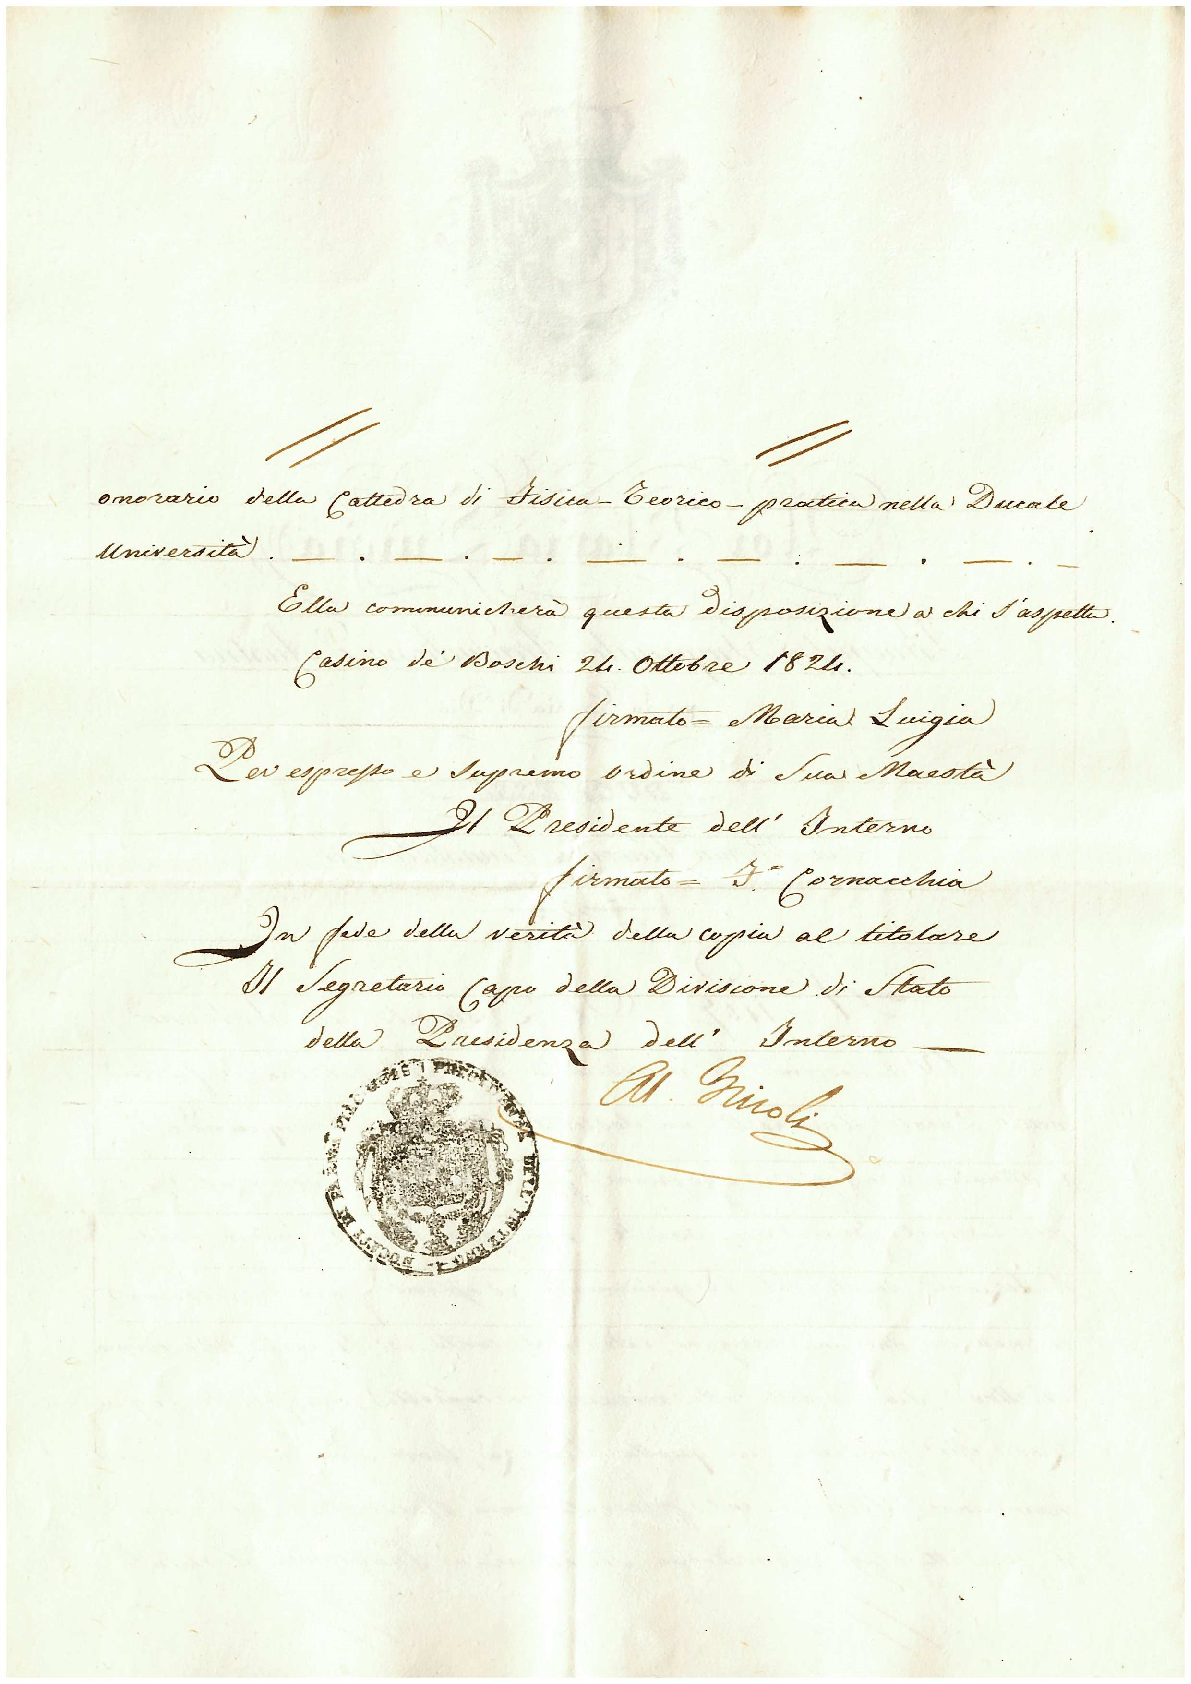 onorario della Cattedra di Fisica-Teorico-pratica nella Ducale
Università . — . — . — . — . — . — . — . —
Ella communicherà questa disposizione a chi s'aspetta.
Casino de' Boschi 24. Ottobre 1824.
firmato = Maria Luigia
Per espresso e supremo ordine di Sua Maestà
Il Presidente dell' Interno
firmato = F. Cornacchia
In fede della verità della copia al titolare
Il Segretario Capo della Divisione di Stato
della Presidenza dell' Interno —
PRESIDENZA DELL' INTERNO
DUCATI DI PARMA